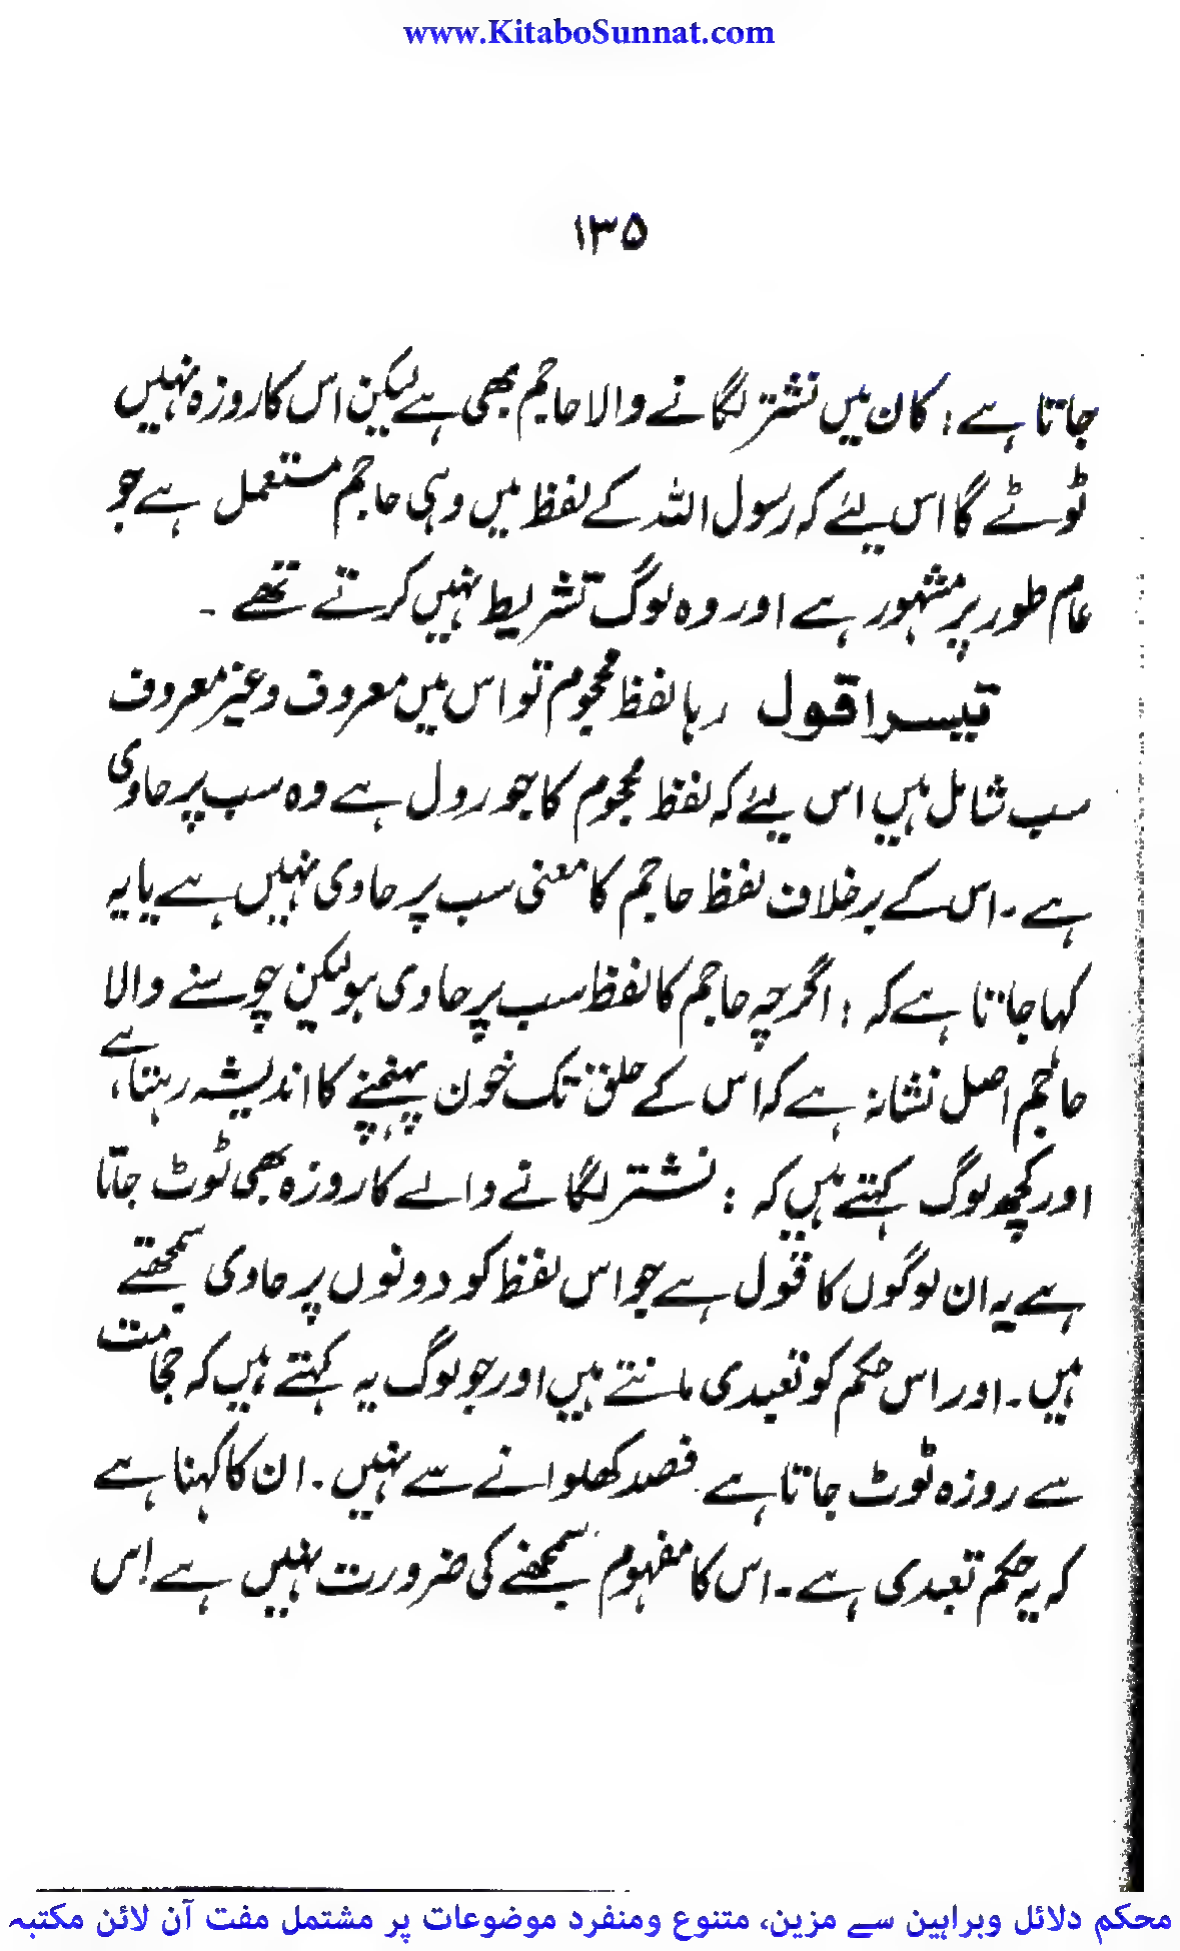 www.KitaboSunnat.com
۱۳۵
جاتا ہے: کان میں نشتر لگانے والا حاجم بھی ہے لیکن اس کا روزہ نہیں
ٹوٹے گا اس لئے کہ رسول اللہ کے لفظ میں وہی حاجم مستعمل ہے جو
عام طور پر مشہور ہے اور وہ لوگ تشریط نہیں کرتے تھے ۔
تیسرا قول رہا لفظ محجوم تو اس میں معروف وغیر معروف
سب شامل ہیں اس لئے کہ لفظ محجوم کا جو رول ہے وہ سب پر حاوی
ہے ۔ اس کے برخلاف لفظ حاجم کا معنی سب پر حاوی نہیں ہے یا یہ
کہا جاتا ہے کہ : اگرچہ حاجم کا لفظ سب پر حاوی ہو لیکن چوسنے والا
حاجم اصل نشانہ ہے کہ اس کے حلق تک خون پہنچنے کا اندیشہ رہتا ہے،
اور کچھ لوگ کہتے ہیں کہ : نشتر لگانے والے کا روزہ بھی ٹوٹ جاتا
ہے یہ ان لوگوں کا قول ہے جو اس لفظ کو دونوں پر حاوی سمجھتے
ہیں ۔ اور اس حکم کو تعبدی مانتے ہیں اور جو لوگ یہ کہتے ہیں کہ حجامت
سے روزہ ٹوٹ جاتا ہے فصد کھلوانے سے نہیں ۔ ان کا کہنا ہے
کہ یہ حکم تعبدی ہے ۔ اس کا مفہوم سمجھنے کی ضرورت نہیں ہے اس
محکم دلائل وبراہین سے مزین، متنوع ومنفرد موضوعات پر مشتمل مفت آن لائن مکتبہ